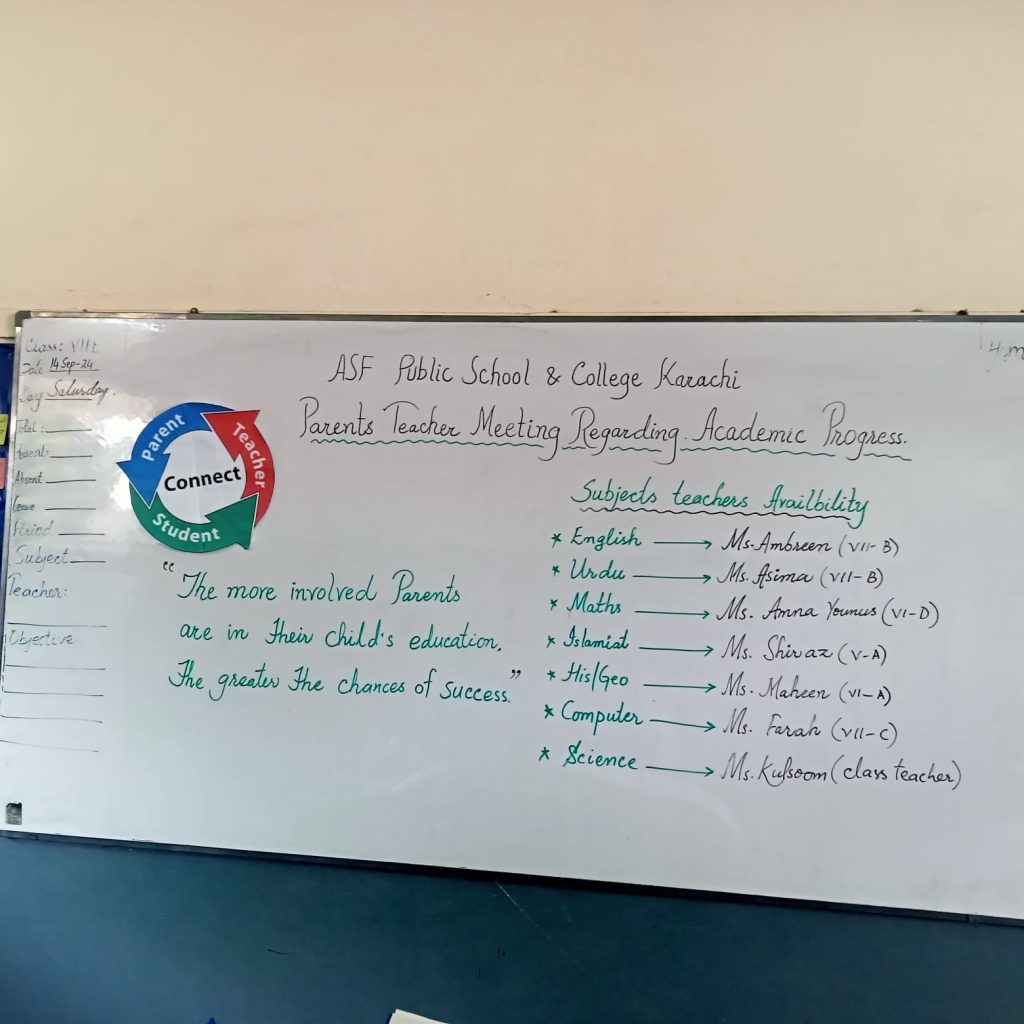 Class: VII-E
Date 14 Sep-24
Day Saturday.
Total:
Present:
Absent
Leave
Period
Subject
Teacher:
Objective
ASF Public School & College Karachi
Parents Teacher Meeting Regarding Academic Progress.
Parent
Teacher
Connect
Student
"The more involved Parents
are in their child's education,
The greater the chances of success."
Subjects teachers Availbility
* English → Ms. Ambreen (VII-B)
* Urdu → Ms. Asima (VII-B)
* Maths → Ms. Amna Younus (VI-D)
* Islamiat → Ms. Shiraz (V-A)
* His/Geo → Ms. Maheen (VI-A)
* Computer → Ms. Farah (VII-C)
* Science → Ms. Kulsoom (class teacher)